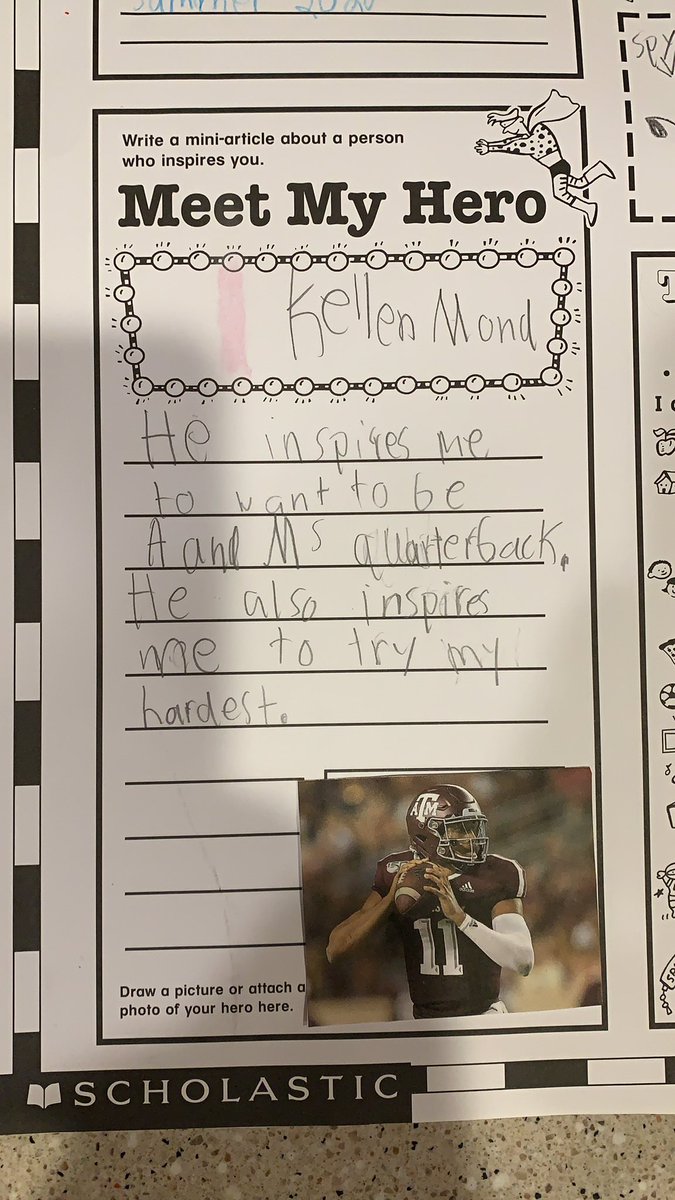 summer 2020
spy
Write a mini-article about a person
who inspires you.
Meet My Hero
Kellen Mond
He inspires me
to want to be
A and Ms quarterback.
He also inspires
me to try my
hardest.
ATM
11
Draw a picture or attach a
photo of your hero here.
SCHOLASTIC